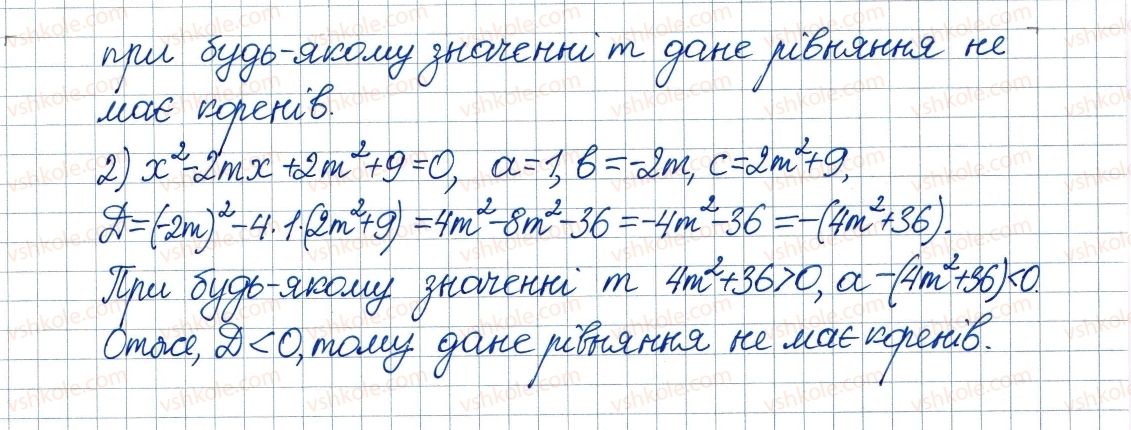 при будь-якому значенні m дане рівняння не
має коренів.
2) x²-2mx+2m²+9=0, a=1, b=-2m, c=2m²+9,
D=(-2m)²-4·1·(2m²+9)=4m²-8m²-36=-4m²-36=-(4m²+36).
При будь-якому значенні m 4m²+36>0, а -(4m²+36)<0.
Отже, D<0, тому дане рівняння не має коренів.